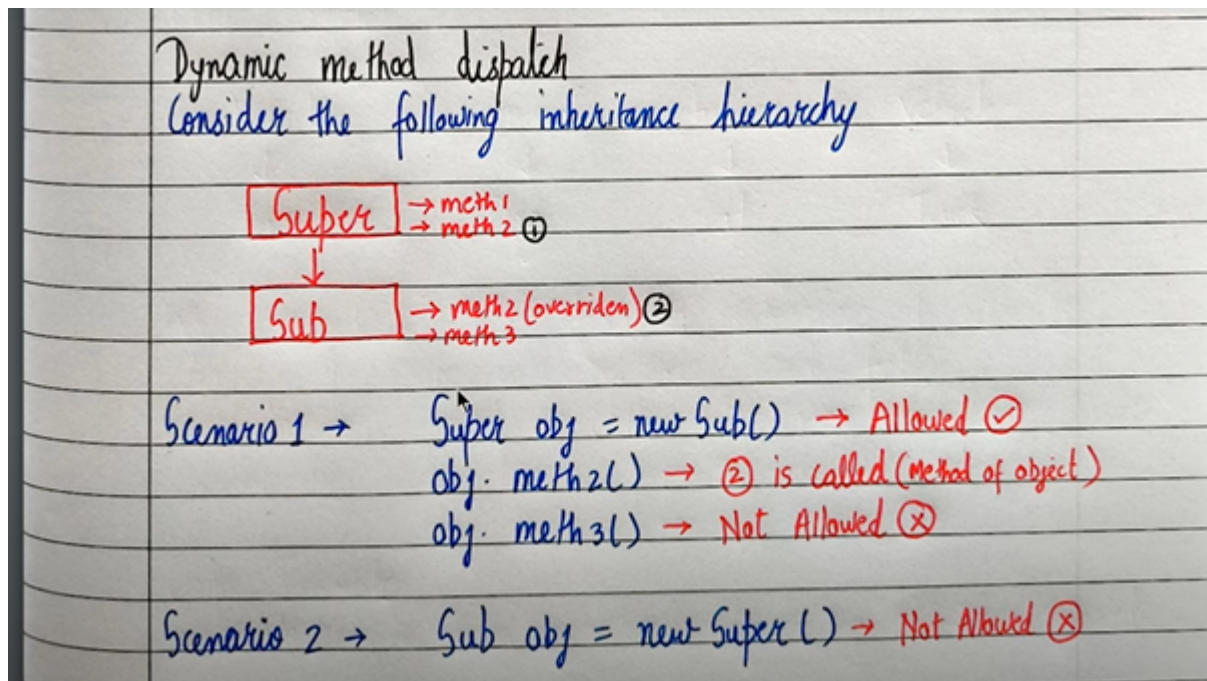 Dynamic method dispatch
Consider the following inheritance hierarchy
Super → meth1
→ meth2 ①
↓
Sub → meth2 (overriden) ②
→ meth3
Scenario 1 → Super obj = new Sub() → Allowed ✓
obj. meth2() → ② is called (Method of object)
obj. meth3() → Not Allowed ⓧ
Scenario 2 → Sub obj = new Super () → Not Allowed ⓧ